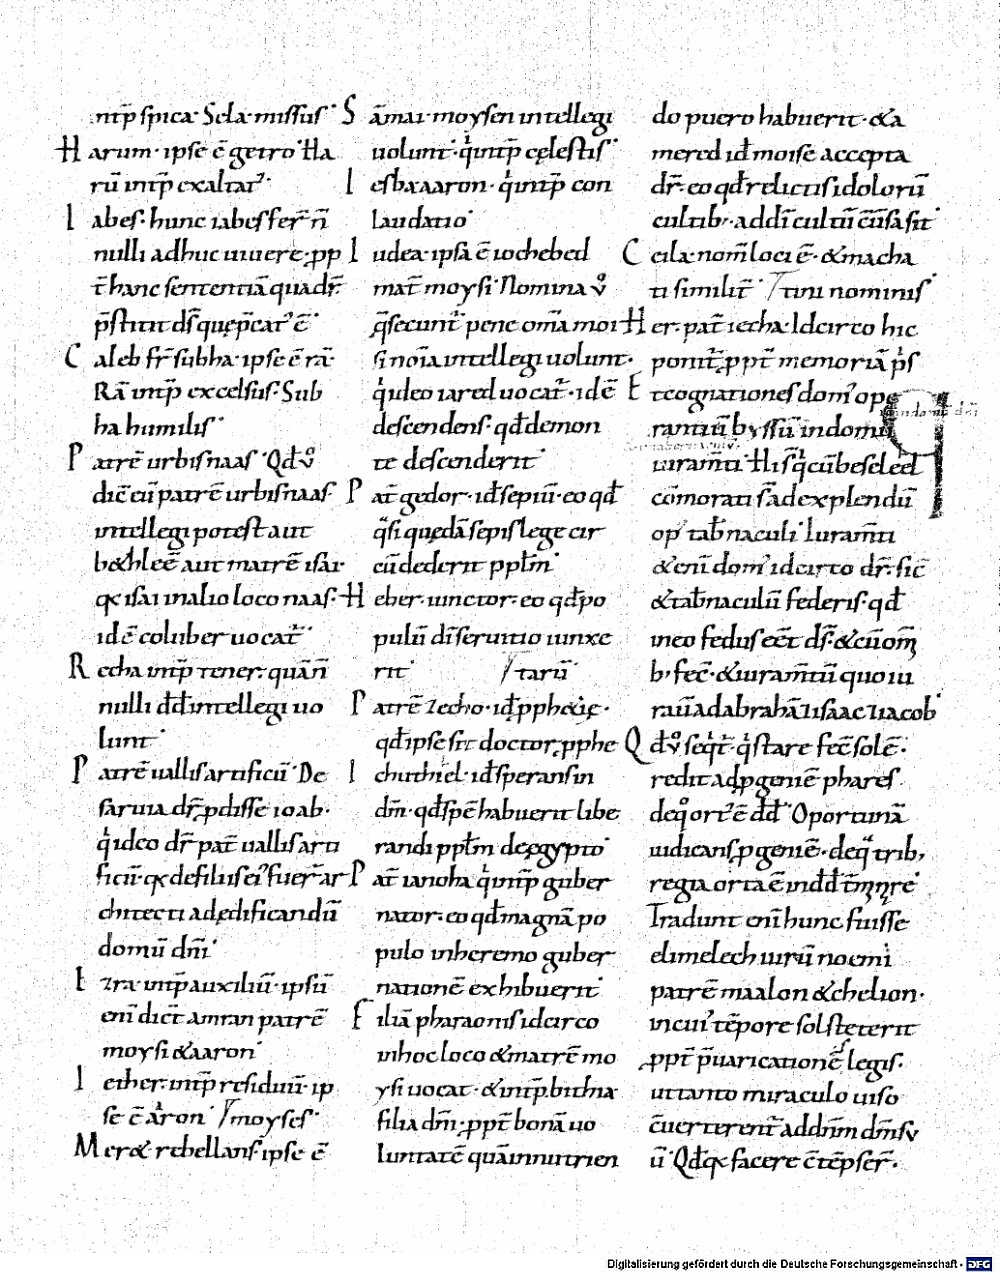 ntp̄ spica· Sela· missus·
Harum· ipse ē getro· Ha
rū intp̄ exaltat᷒·
Iabes· hunc iabes fer̄ n̄
nulli adhuc uiuere· ꝓp
t̄ hanc sententiā quā dr̄·
p̄stitit ds̄ quę p̄cat᷒ ē·
Caleb fr̄ subha· ipse ē rā·
Rā intp̄ excelsus· Sub
ha humilis·
Patrē urbis naas· Qđ v̊
dic̄ eū patrē urbis naas·
intellegi potest aut
bethleē aut matrē isai·
qx isai in alio loco naas·
idē coluber uocat̄·
Recha intp̄ tener· quā n̄
nulli dđ intellegi uo
lunt·
Patrē uallis artificū· De
saruia dr̄ ꝓdisse ioab·
q̇ ideo dr̄ pat̄ uallis arti
ficū· qx de filiis ei᷒ fuer̄ ar
chitecti ad ędificandū
domū dn̄i·
Ezra intp̄ auxiliū· ipsū
enī dict̄ amran patrē
moysi & aaron·
Iether· intp̄ residuū· ip
se ē aaron· / moyses·
Mer& rebellans· ipse ē
Samai· moysen intellegi
uolunt· q̇ intp̄ cęlestis·
Iesba aaron· q̇ intp̄ con
laudatio·
Iudea· ipsa ē iochebed
mat̄ moysi· Nomina v̊
q̄ secunt̄ pene om̄a moi
si nōia intellegi uolunt·
q̇ ideo iared uocat̄· idē
descendens· qđ de mon
te descenderit·
Pat̄ gedor· id ̄ sepiū· eo qđ
q̄si quędā sepis lege cir
cū dederit pplm̄·
Heber· iunctor· eo qđ po
pulū dī seruitio iunxe
rit· / tarū·
Patrē zecho· id ̄ ꝓph&ię·
qđ ipse sit doctor ꝓphe
Ichuthiel· id ̄ sperans in
dm̄· qđ spē habuerit libe
randi pplm̄ de ęgypto·
Pat̄ ianoha q̇ intp̄ guber
nator· eo qđ magnā po
pulo in heremo guber
nationē exhibuerit·
Filiā pharaonis idcirco
in hoc loco & matrē mo
ysi uocat· & intp̄ bithia
filia dm̄· ꝓpt̄ bonā uo
luntatē quā in nutrien
do puero habuerit· & a
mered id ̄ moise accepta
dr̄· eo qđ relictis idolorū
cultib᷒· ad dī cultū c̄uersa sit·
Ceila· nom̄ loci ē· & macha
ti similit̄· / tini nominis·
Her· pat̄ iecha· Idcirco hic
ponit̄ ꝓpt̄ memoriā p̄s
Et cognationes dom᷒ ope
rantiū byssū in domū
iuram̄ti· Hi s̄ q̇ cū beseleel
cōmorati s̄ ad explendū
op᷒ tab̄naculi· Iuram̄ti
& enī dom᷒ idcirco dr̄· sic̄
& tab̄naculū federis· qđ
in eo fedus ēet ds̄· & cū om̄
b᷒ fec̄· & iuram̄tū quo iu
rauit ad abrahā isaac iacob·
Qđ v̊ seq̄t̄· q̇ stare fec̄ solē·
redit ad ꝓgeniē phares·
de q̊ ort᷒ ē dđ· Oportunā
iudicans ꝓgeniē· de q̄ trib᷒
regia orta ē in dđ
Tradunt enī hunc fuisse
elimelech uirū noemi
patrē maalon & chelion·
in cui᷒ tēpore sol steterit
ꝓpt̄ p̄uaricationē legis·
ut tanto miraculo uiso
c̄uerterent̄ ad dn̄m dm̄ sv
ū· Qđ qx facere c̄tēpser̄·
Digitalisierung gefördert durch die Deutsche Forschungsgemeinschaft - DFG